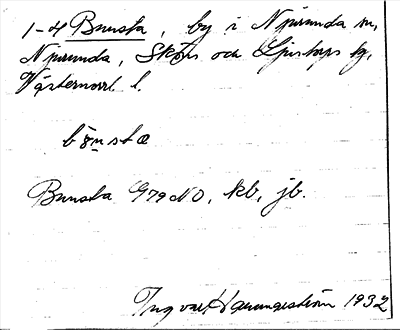 1-4 Bunsta, by i Njurunda sn,
Njurunda, Sköns och Ljustorps tg,
Västernorrl l.
bönsta
Bunsta G79 NO, kb, jb.
Ingvar 1932